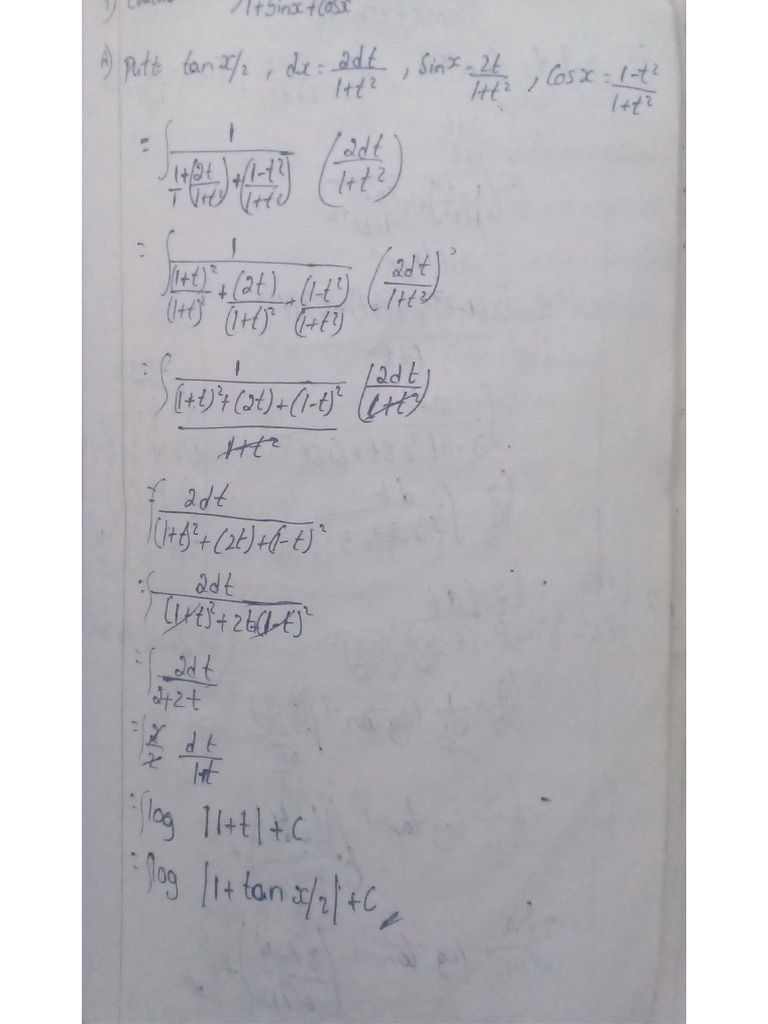 1) 1+Sinx+Cosx
A) Putt tan x/2 , dx = 2dt/1+t² , Sinx = 2t/1+t² , Cosx = 1-t²/1+t²
= ∫ 1/(1+/1 (2t/1+t²) + (1-t²/1+t²)) (2dt/1+t²)
= ∫ 1/((1+t)²/(1+t)² + (2t)/(1+t)² + (1-t²)/(1+t²)) (2dt/1+t²)
= ∫ 1/((1+t)²+(2t)+(1-t)²/1+t²) (2dt/1+t²)
∫ 2dt/(1+t)²+(2t)+(1-t)²
= ∫ 2dt/(1+t)²+2t+(1-t)²
= ∫ 2dt/2+2t
= ∫ 2/2 dt/1+t
= ∫log |1+t| + C
= ∫log |1+tan x/2| + C